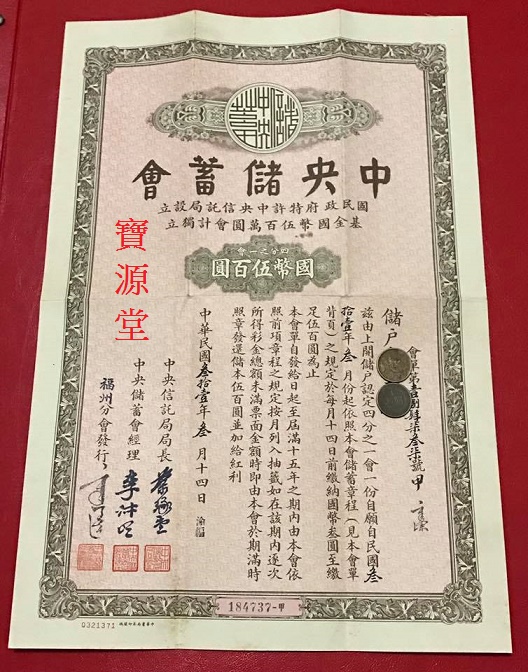 會蓄儲央中
立設局託信央中許特府政民國
立獨計會圓萬百伍幣國金基
會一之分四
圓百伍幣國
寶源堂
儲戶
會單第壹圖肆柒叁柒號甲
茲由上開儲戶認定四分之一會一份自願自民國叁
拾壹年叁月份起依照本會儲蓄章程(見本會單
背頁)之規定於每月十四日前繳納國幣叁圓至繳
足伍百圓為止
本會單自發給日起至屆滿十五年之期內由本會依
照前項章程之規定按月列入抽籤如在該期內逐次
所得彩金總額未滿票面金額時即由本會於期滿時
照章發還儲本伍百圓並加給紅利
中華民國叁拾壹年叁月十四日
中央信託局局長
中央儲蓄會經理
福州分會發行
184737-甲
0321371